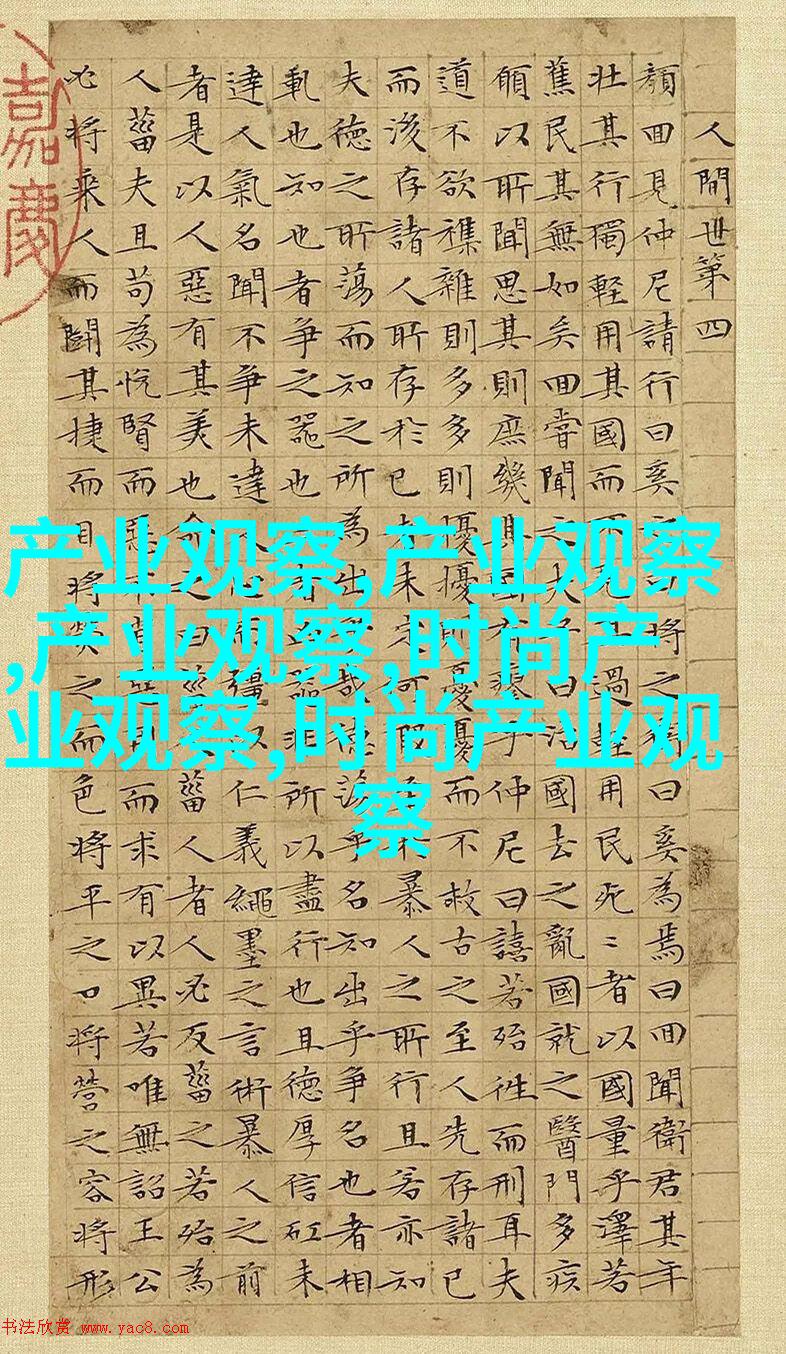 嘉慶
人間世第四
顏回見仲尼請行曰奚之曰將之衛曰奚為焉曰回聞衛君其年
壯其行獨輕用其國而不見其過輕用民死〻者以國量乎澤若
蕉民其無如矣回嘗聞之夫子曰治國去之亂國就之醫門多疾
願以所聞思其則庶幾其國有瘳乎仲尼曰譆若殆往而刑耳夫
道不欲襍雜則多多則擾擾則憂擾而不救古之至人先存諸己
而後存諸人所存於己者未定何暇至於暴人之所行且若亦知
夫德之所蕩而知之所為出乎哉德蕩乎名知出乎爭名也者相
軋也知也者爭之器也二者凶器非所以盡行也且德厚信矼未
達人氣名聞不爭未達人心而彊以仁義繩墨之言術暴人之前
者是以人惡有其美也命之曰菑菑人者人必反菑之若殆為
人菑夫且苟為悅賢而惡不肖惡用而求有以異若唯無詔王公
必將乘人而鬭其捷而目將熒之而色將平之口將營之容將形
产业观察,产业观察
,产业观察,时尚产
业观察,时尚产业观
察
书法欣赏 www.yac8.com